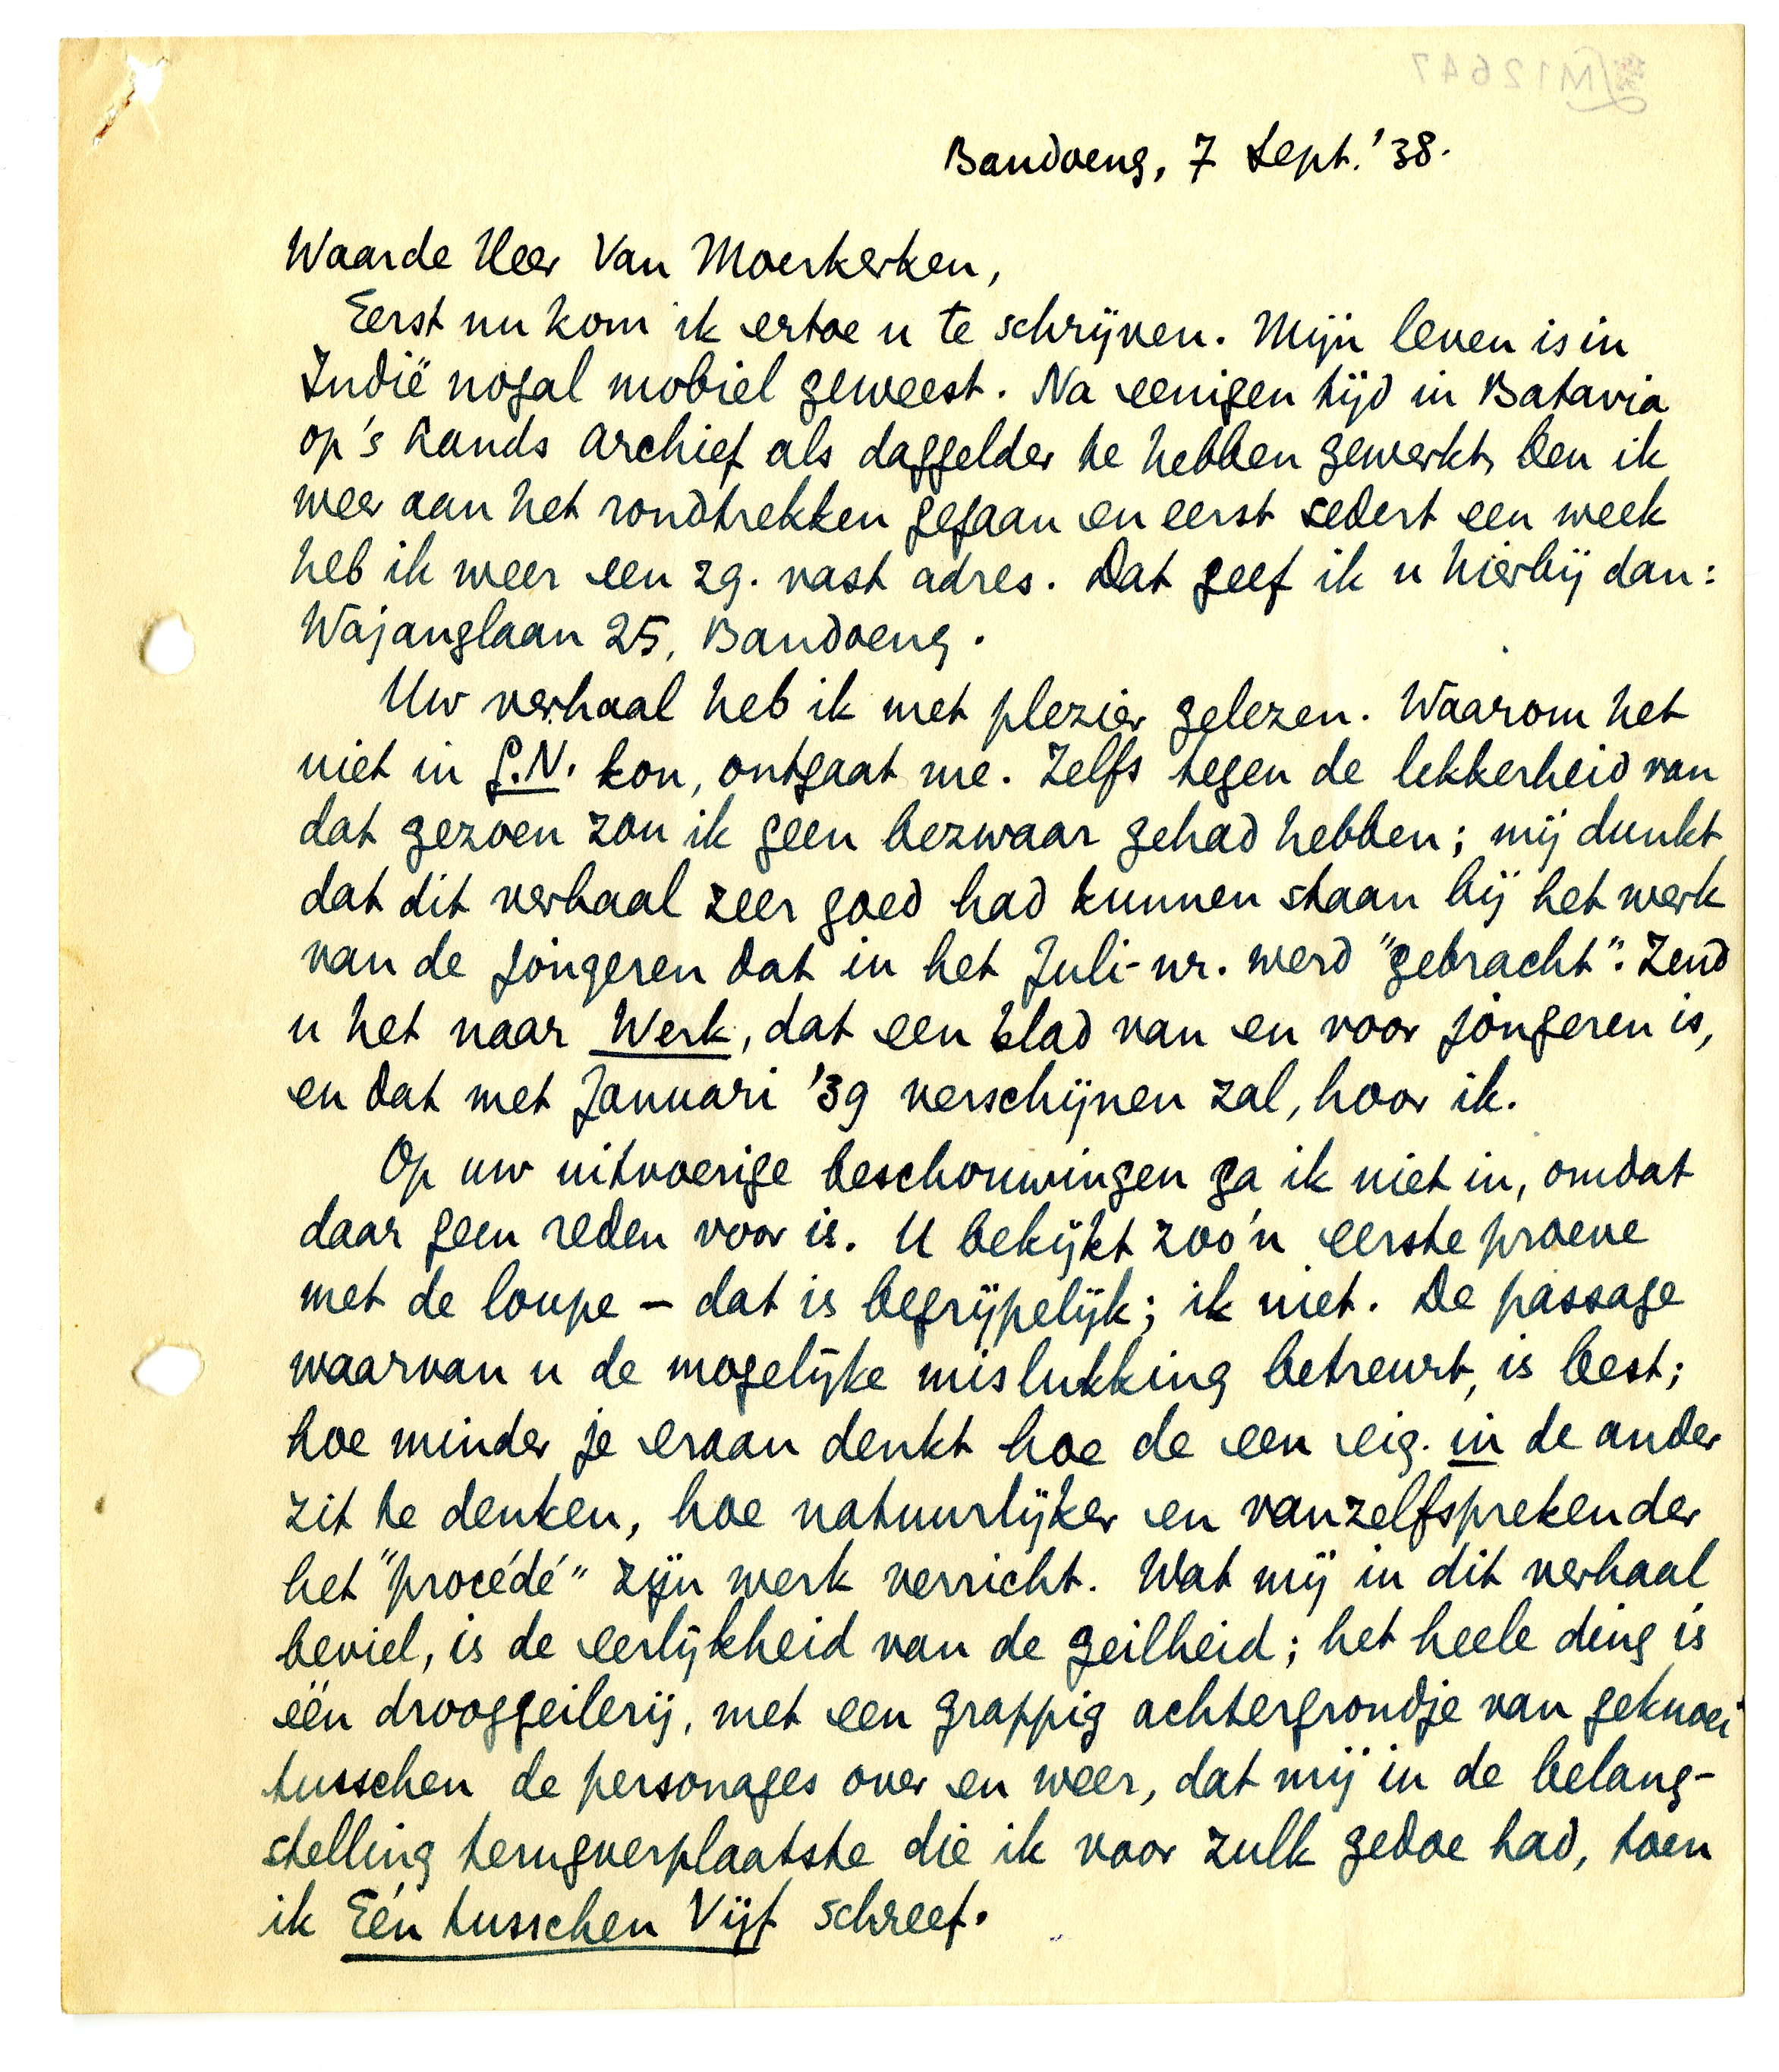 M12647
Bandoeng, 7 Sept. '38.
Waarde Heer Van Moerkerken,
Eerst nu kom ik ertoe u te schrijven. Mijn leven is in
Indië nogal mobiel geweest. Na eenigen tijd in Batavia
op 's Lands Archief als daggelder te hebben gewerkt, ben ik
weer aan het rondtrekken gegaan en eerst sedert een week
heb ik weer een zg. vast adres. Dat geef ik u hierbij dan:
Wajanglaan 25, Bandoeng.
Uw verhaal heb ik met plezier gelezen. Waarom het
niet in G.N. kon, ontgaat me. Zelfs tegen de lekkerheid van
dat gezoen zou ik geen bezwaar gehad hebben; mij dunkt
dat dit verhaal zeer goed had kunnen staan bij het werk
van de jongeren dat in het Juli-nr. werd "gebracht". Zend
u het naar Werk, dat een blad van en voor jongeren is,
en dat met Januari '39 verschijnen zal, hoor ik.
Op uw uitvoerige beschouwingen ga ik niet in, omdat
daar geen reden voor is. U bekijkt zoo'n eerste proeve
met de loupe – dat is begrijpelijk; ik niet. De passage
waarvan u de mogelijke mislukking betreurt, is best;
hoe minder je eraan denkt hoe de een eig. in de ander
zit te denken, hoe natuurlijker en vanzelfsprekender
het "procédé" zijn werk verricht. Wat mij in dit verhaal
beviel, is de eerlijkheid van de geilheid; het heele ding is
één drooggeilerij, met een grappig achtergrondje van geknoei
tusschen de personages over en weer, dat mij in de belang-
stelling terugverplaatste die ik voor zulk gedoe had, toen
ik Eén tusschen Vijf schreef.